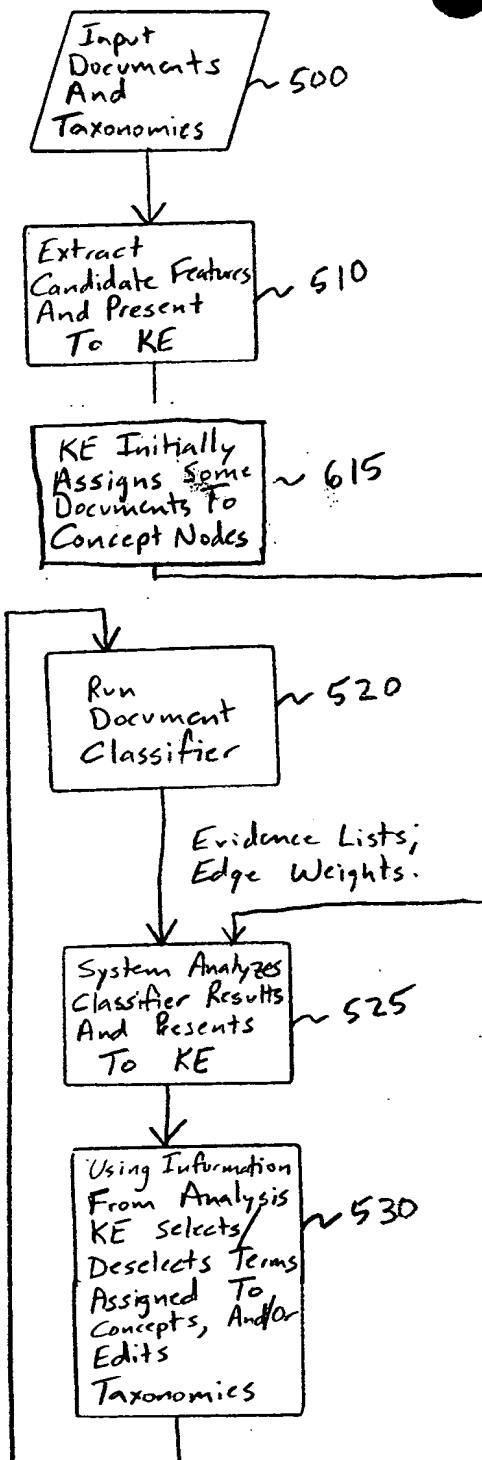 Input
Documents
And
Taxonomies
500
Extract
Candidate Features
And Present
To KE
510
KE Initially
Assigns Some
Documents To
Concept Nodes
615
Run
Document
Classifier
520
Evidence Lists;
Edge Weights.
System Analyzes
Classifier Results
And Presents
To KE
525
Using Information
From Analysis
KE Selects/
Deselects Terms
Assigned To
Concepts, And/Or
Edits
Taxonomies
530